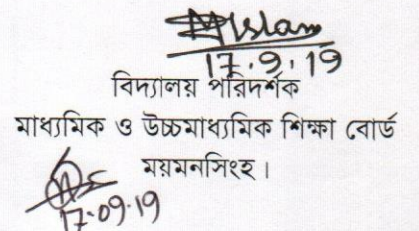 Islam
17.9.19
বিদ্যালয় পরিদর্শক
মাধ্যমিক ও উচ্চমাধ্যমিক শিক্ষা বোর্ড
ময়মনসিংহ।
17-09-19